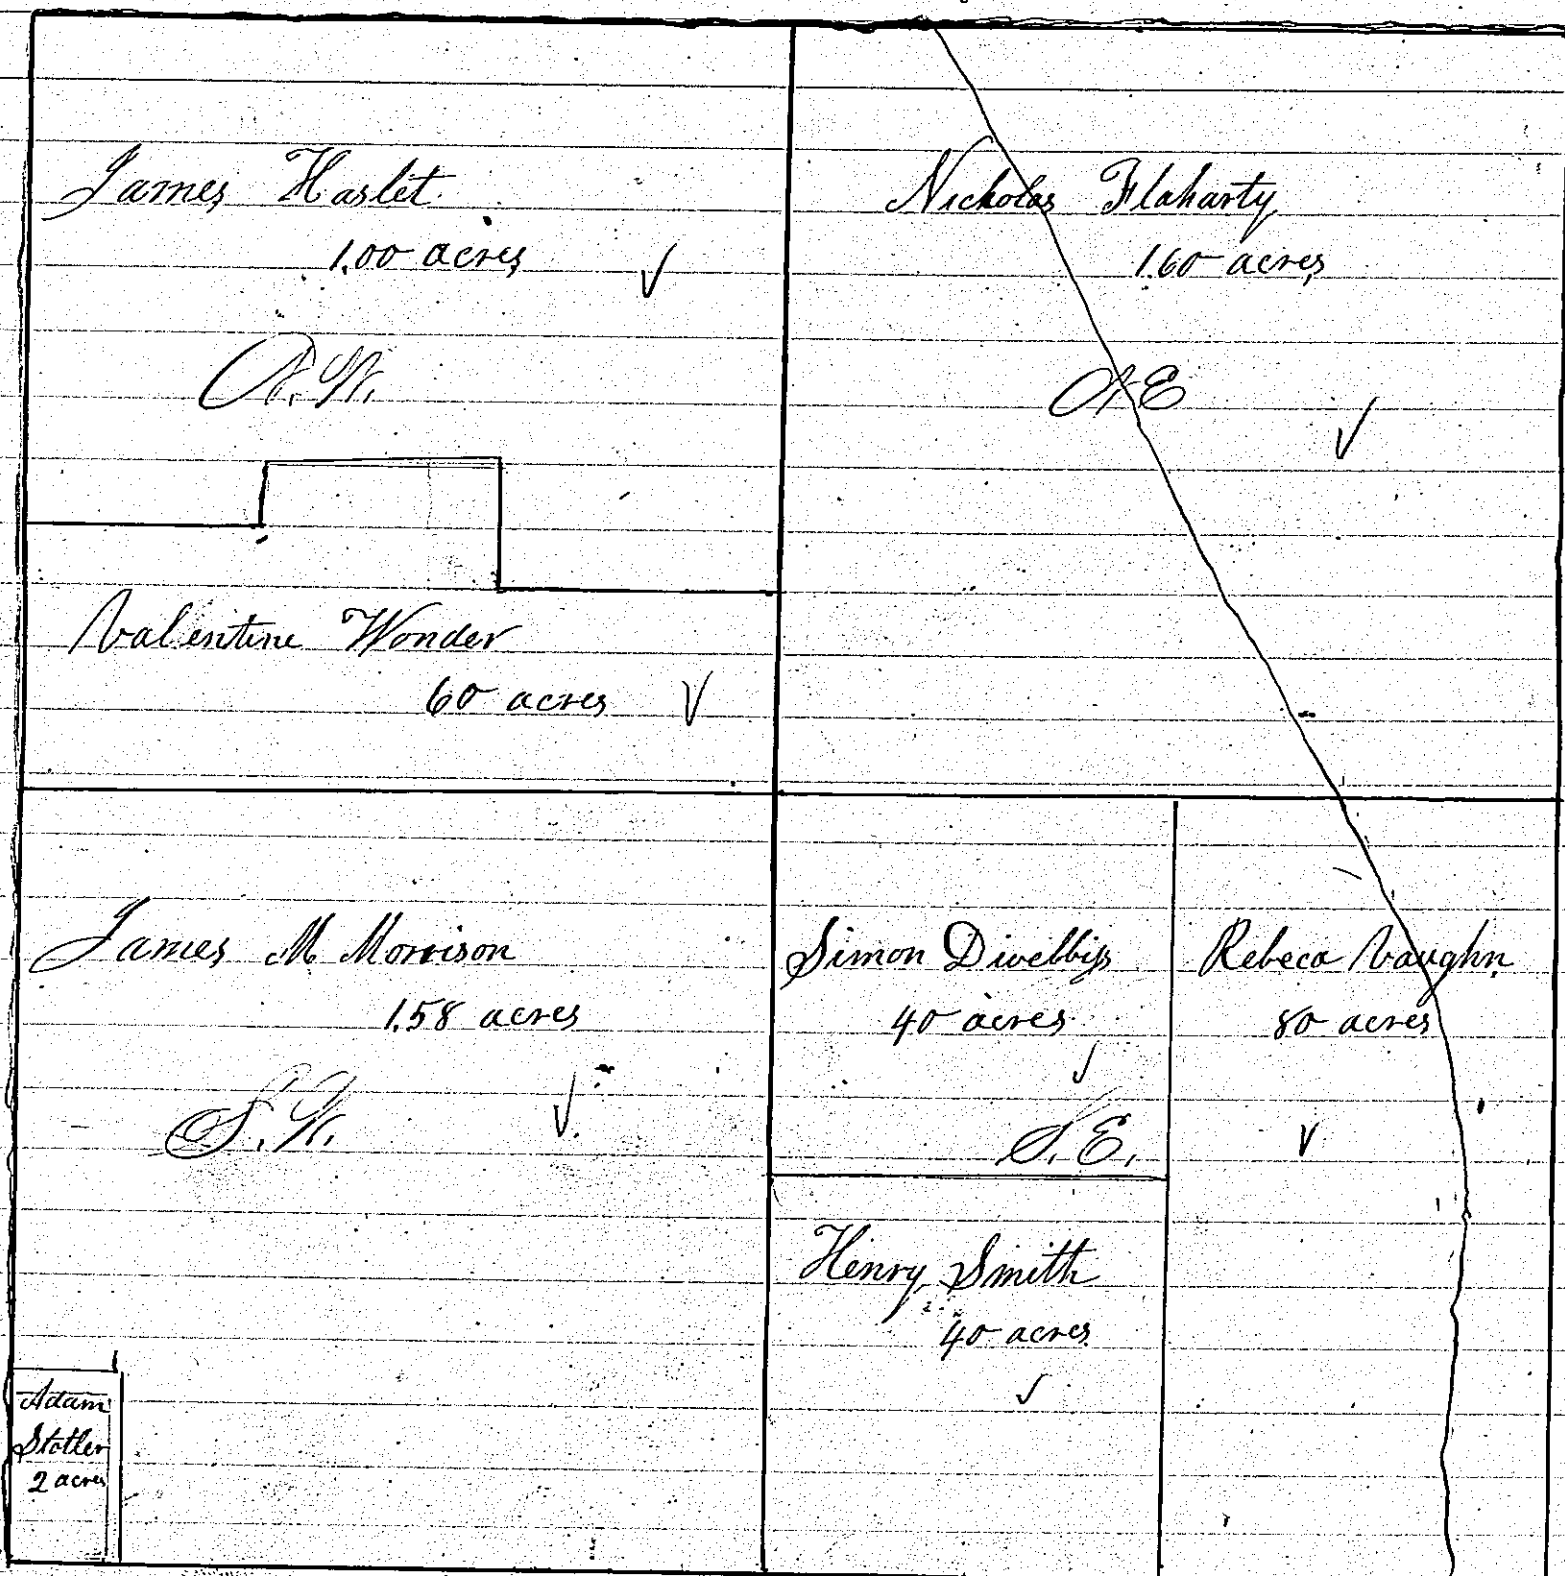 James Haslet
1,00 acres
N.W.
Nickolas Flaharty
160 acres
N E
Valentine Wonder
60 acres
James M Morrison
1,58 acres
S. W.
Simon Divelbiss
40 acres
S. E.
Rebeca Vaughn
80 acres
Henry Smith
40 acres
Adam
Stotler
2 acres